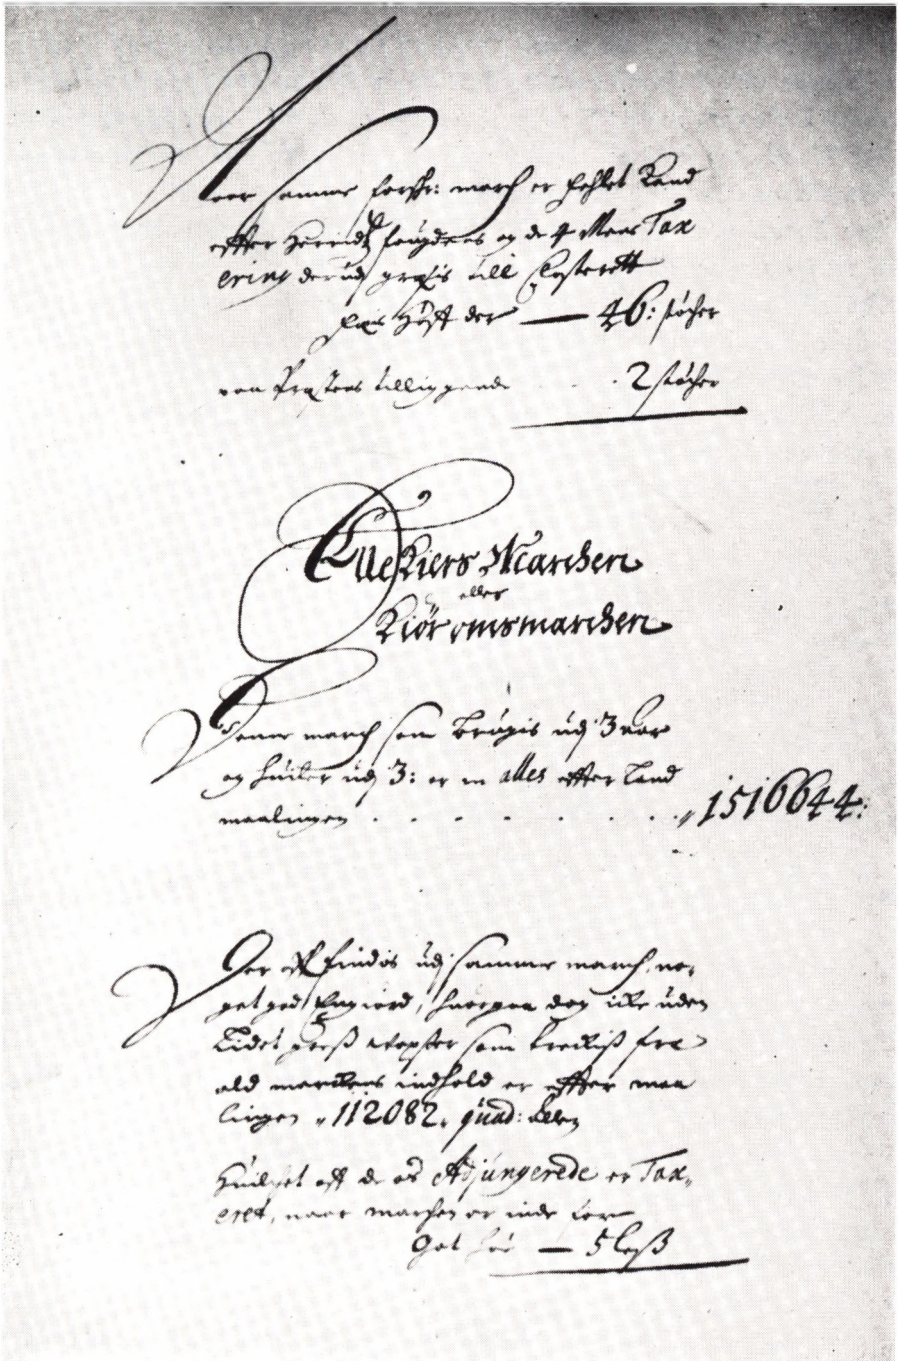 Naar samme forskr: march er heblet kand
effter Herridtz fougdens og de 4 Mens Tax
ering derudj græsis till Closterett
Høff der — 46: støcher
2 støcher
Ellekiers Marchen
eller
Kiöromsmarchen
Denne march som brugis udj 3 aar
og huiler udj 3: er in alles effter land
maalingen . . . . . . . „1516644:
Der off findis udj samme march no,
get god Engiord, huorpaa dog icke uden
Lidet græß voxser som
ald marckens indhold er effter maa
lingen „112082„ quad: Allen
Huilchet aff de os Adjungerede er Tax,
eret, naar marchen er inde
Got höe — 5 læß